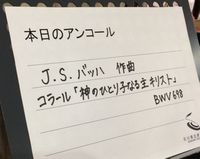 本日のアンコール
J.S.バッハ 作曲
コラール「神のひとり子なる主キリスト」
BWV 698